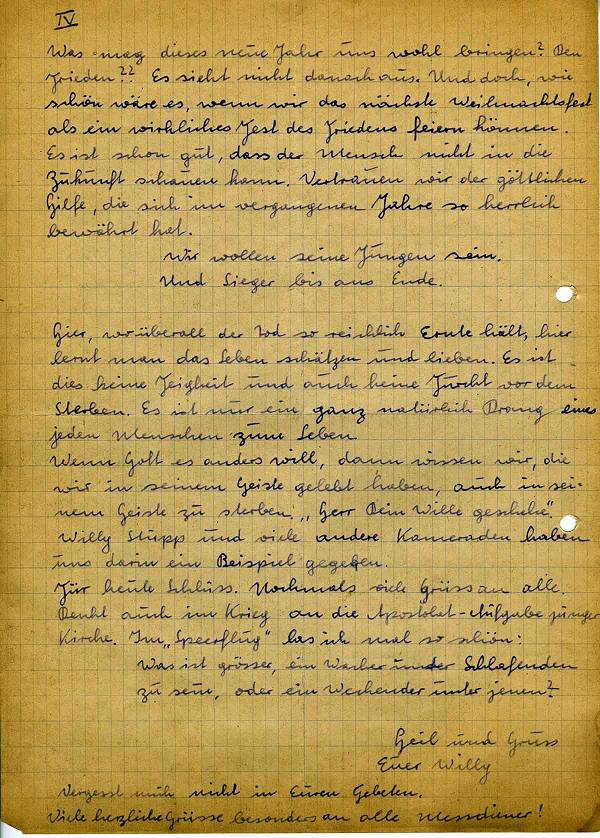 IV
Was mag dieses neue Jahr uns wohl bringen? Den
Frieden?? Es sieht nicht danach aus. Und doch, wie
schön wäre es, wenn wir das nächste Weihnachtsfest
als ein wirkliches Fest des Friedens feiern können.
Es ist schon gut, dass der Mensch nicht in die
Zukunft schauen kann. Vertrauen wir der göttlichen
Hilfe, die sich im vergangenen Jahre so herrlich
bewährt hat.
Wir wollen seine Jungen sein.
Und Sieger bis ans Ende.
Hier, wo überall der Tod so reichlich Ernte hält, hier
lernt man das Leben schätzen und lieben. Es ist
dies keine Feigheit und auch keine Furcht vor dem
Sterben. Es ist nur ein ganz natürlich Drang eines
jeden Menschen zum Leben
Wenn Gott es anders will, dann wissen wir, die
wir in seinem Geiste gelebt haben, auch in sei-
nem Geiste zu sterben. „Herr Dein Wille geschehe".
Willy Stupp und viele andere Kameraden haben
uns darin ein Beispiel gegeben.
Für heute Schluss. Nochmals viele Grüss an alle.
Denkt auch im Krieg an die Apostolat-Aufgabe junger
Kirche. Im „Speerflug" las ich mal so schön:
Was ist grösser, ein Wacher unter Schlafenden
zu sein, oder ein Weckender unter jenen?
Heil und Gruss
Euer Willy
Vergesst mich nicht in Euren Gebeten.
Viele herzliche Grüsse besonders an alle Messdiener!